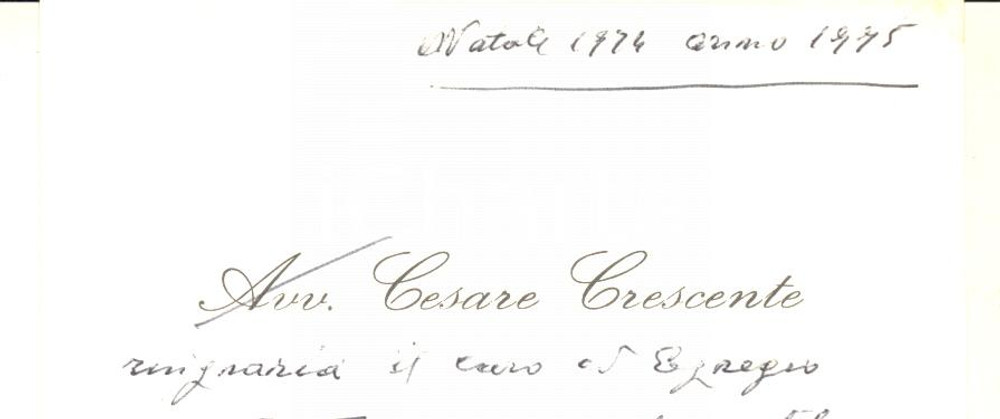 Natale 1974 anno 1975
Avv. Cesare Crescente
ringrazia il caro ed Egregio